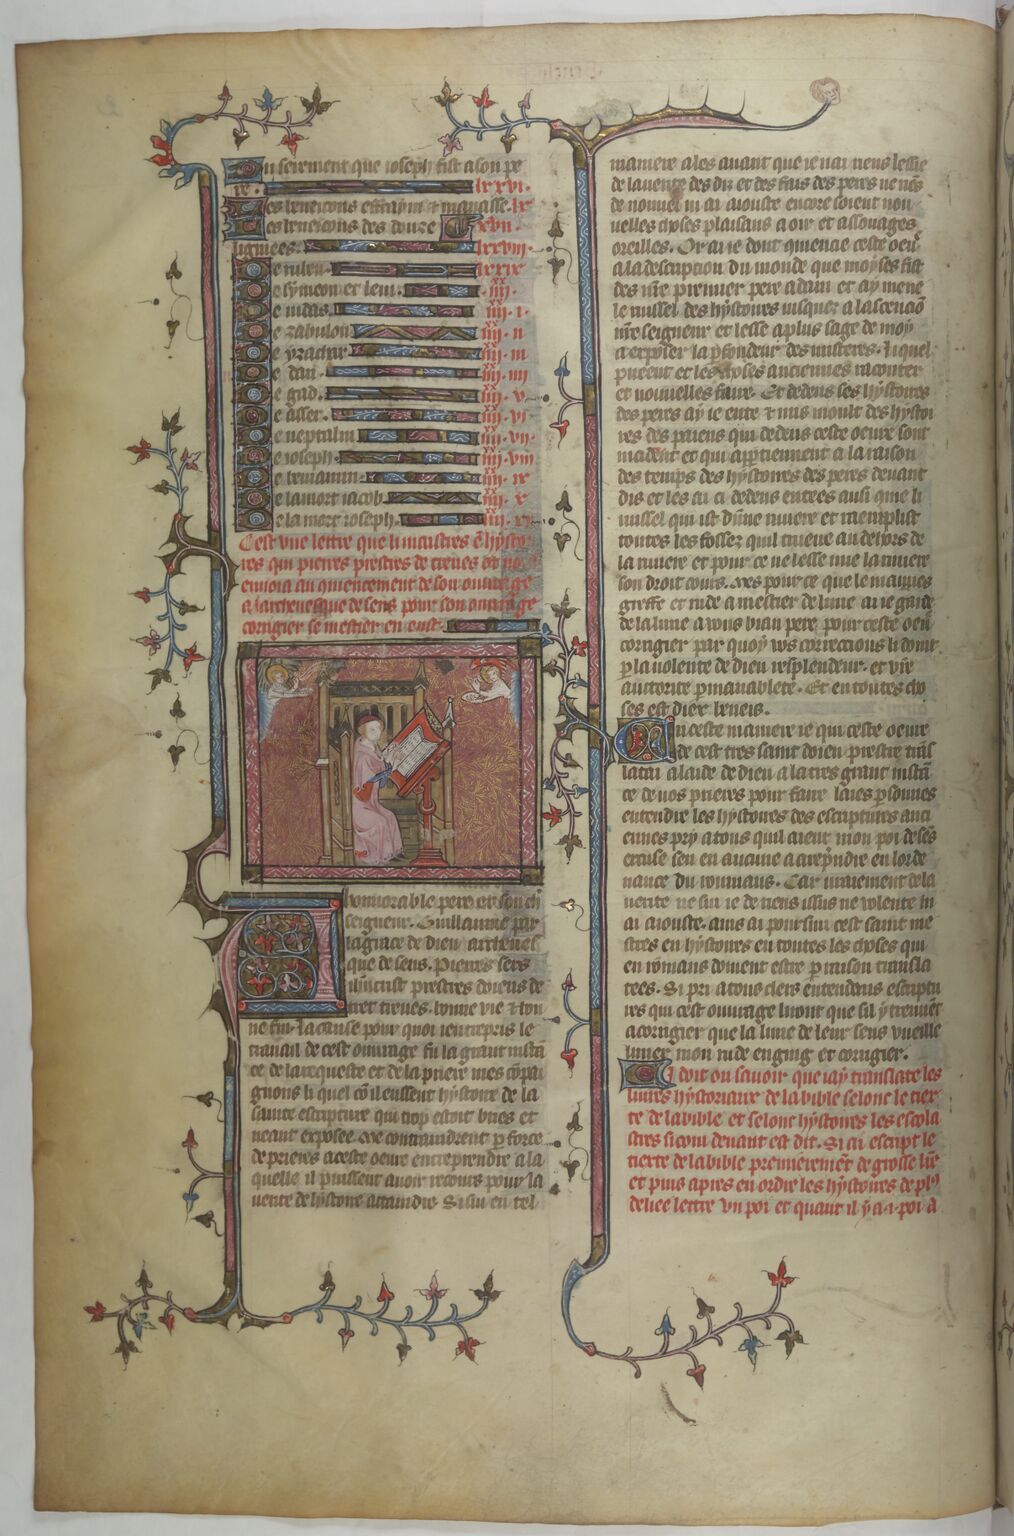 Du serement que ioseph fist a son pe
re. lxxvi.
Des beneicons effraym et manasse. lx
Des beneicons des douze xvii.
lignees. lxxviii.
De ruben lxxix
De symeon et leui. iiii.
De iudas. iiii. i.
De zabulon iiii. ii
De ysachar iiii. iii
De dan. iiii. iiii
De gad. iiii. v.
De asser. iiii. vi
De neptalim iiii. vii.
De ioseph. iiii. viii
De beniamin iiii. ix
De la mort iacob iiii. x
De la mort ioseph. iiii. xi.
Cest une lettre que li maistres es hysto
ires qui pierres prestres de troies
enuoia au commencement de son ouurage
a larceuesque de sens pour son ouurage
corrigier se mestier en eust.
A honnorable pere et son ch
seigneur. Guillaume par
la grace de dieu arceues
que de sens. Pierres sers
ihesucrist prestres doiens de
troies. bonne vie et bon
ne fin. La cause pour quoi ientrepris le
trauail de cest ouurage fu la grant instan
ce de la requeste et de la priere mes compai
gnons li quel com il eussent hystoire de la
sainte escripture qui trop estoit bries et
neant exposee. Me contraindrent par force
de prieres a ceste oeure entreprendre a la
quelle il puissent auoir recours pour la
verite de hystoire attaindre. Si sui en tel
maniere ales auant que ie nai riens lessie
de la uerite des dis et des fais des peres ne riens
de nouuel ni ai aiouste encore soient nou
uelles choses plaisans a oir et assouages
oreilles. Or ai ie dont commencie ceste oeure
a la description du monde que moyses fist
des nostre premier pere adam et ay mene
le ruissel des hystoires iusquez a lascencion
nostre seigneur et lesse a plus sage de moy
a exposer la parfondeur des misteres. li quel
pueent et les choses anciennes raconter
et nouuelles faire. Et dedens les hystoires
des peres ay ie ente et mis moult des hystoi
res des paiens qui dedens ceste oeure sont
incident et qui appartiennent a la raison
des temps des hystoires des peres deuant
dis et les ai ci dedens entees ausi comme li
ruissel qui ist dune riuiere et raemplist
toutes les fossez quil trueue au dehors de
la riuiere et pour ce ne lesse mie la riuiere
son droit cours. Mes pour ce que le mauues
greffe et rude a mestier de lime ai ie garde
de la lime a vous biau pere pour ceste oeure
corrigier par quoy vos correccions li doint
par la uolente de dieu resplendeur. et vostre
auctorite parmanablete. Et en toutes cho
ses est diex beneis.
En ceste maniere ie qui ceste oeure
de cest tres saint doien prestre trans
latai a laide de dieu a la tres grant instan
ce de nos prieres pour faire laies personnes
entendre les hystoires des escriptures anci
ennes pry a tous quil aient mon poi de sens
escuse sen en aucune a a reprendre en lorde
nance du roumans. Car uraiement de la
verite ne sui ie de riens issus ne volente ni
ai aiouste. ains ai poursiui cest saint me
stres en hystoires en toutes les choses qui
en romans doiuent estre par raison transla
tees. Si pri a tous clers entendens escriptu
res qui cest ouurage liront que sil y treuuent
a corrigier que la lime de leur sens vueille
limer mon rude enging et corrigier.
Ci doit on sauoir que iay translate les
liures hystoriaux de la bible selonc le tier
te de la bible et selonc hystoires les escola
stres si com deuant est dit. Si ai escript le
tierte de la bible premierement de grosse lettre
et puis apres en ordre les hystoires de plus
deliee lettre un poi et quant il y a .i. poi a